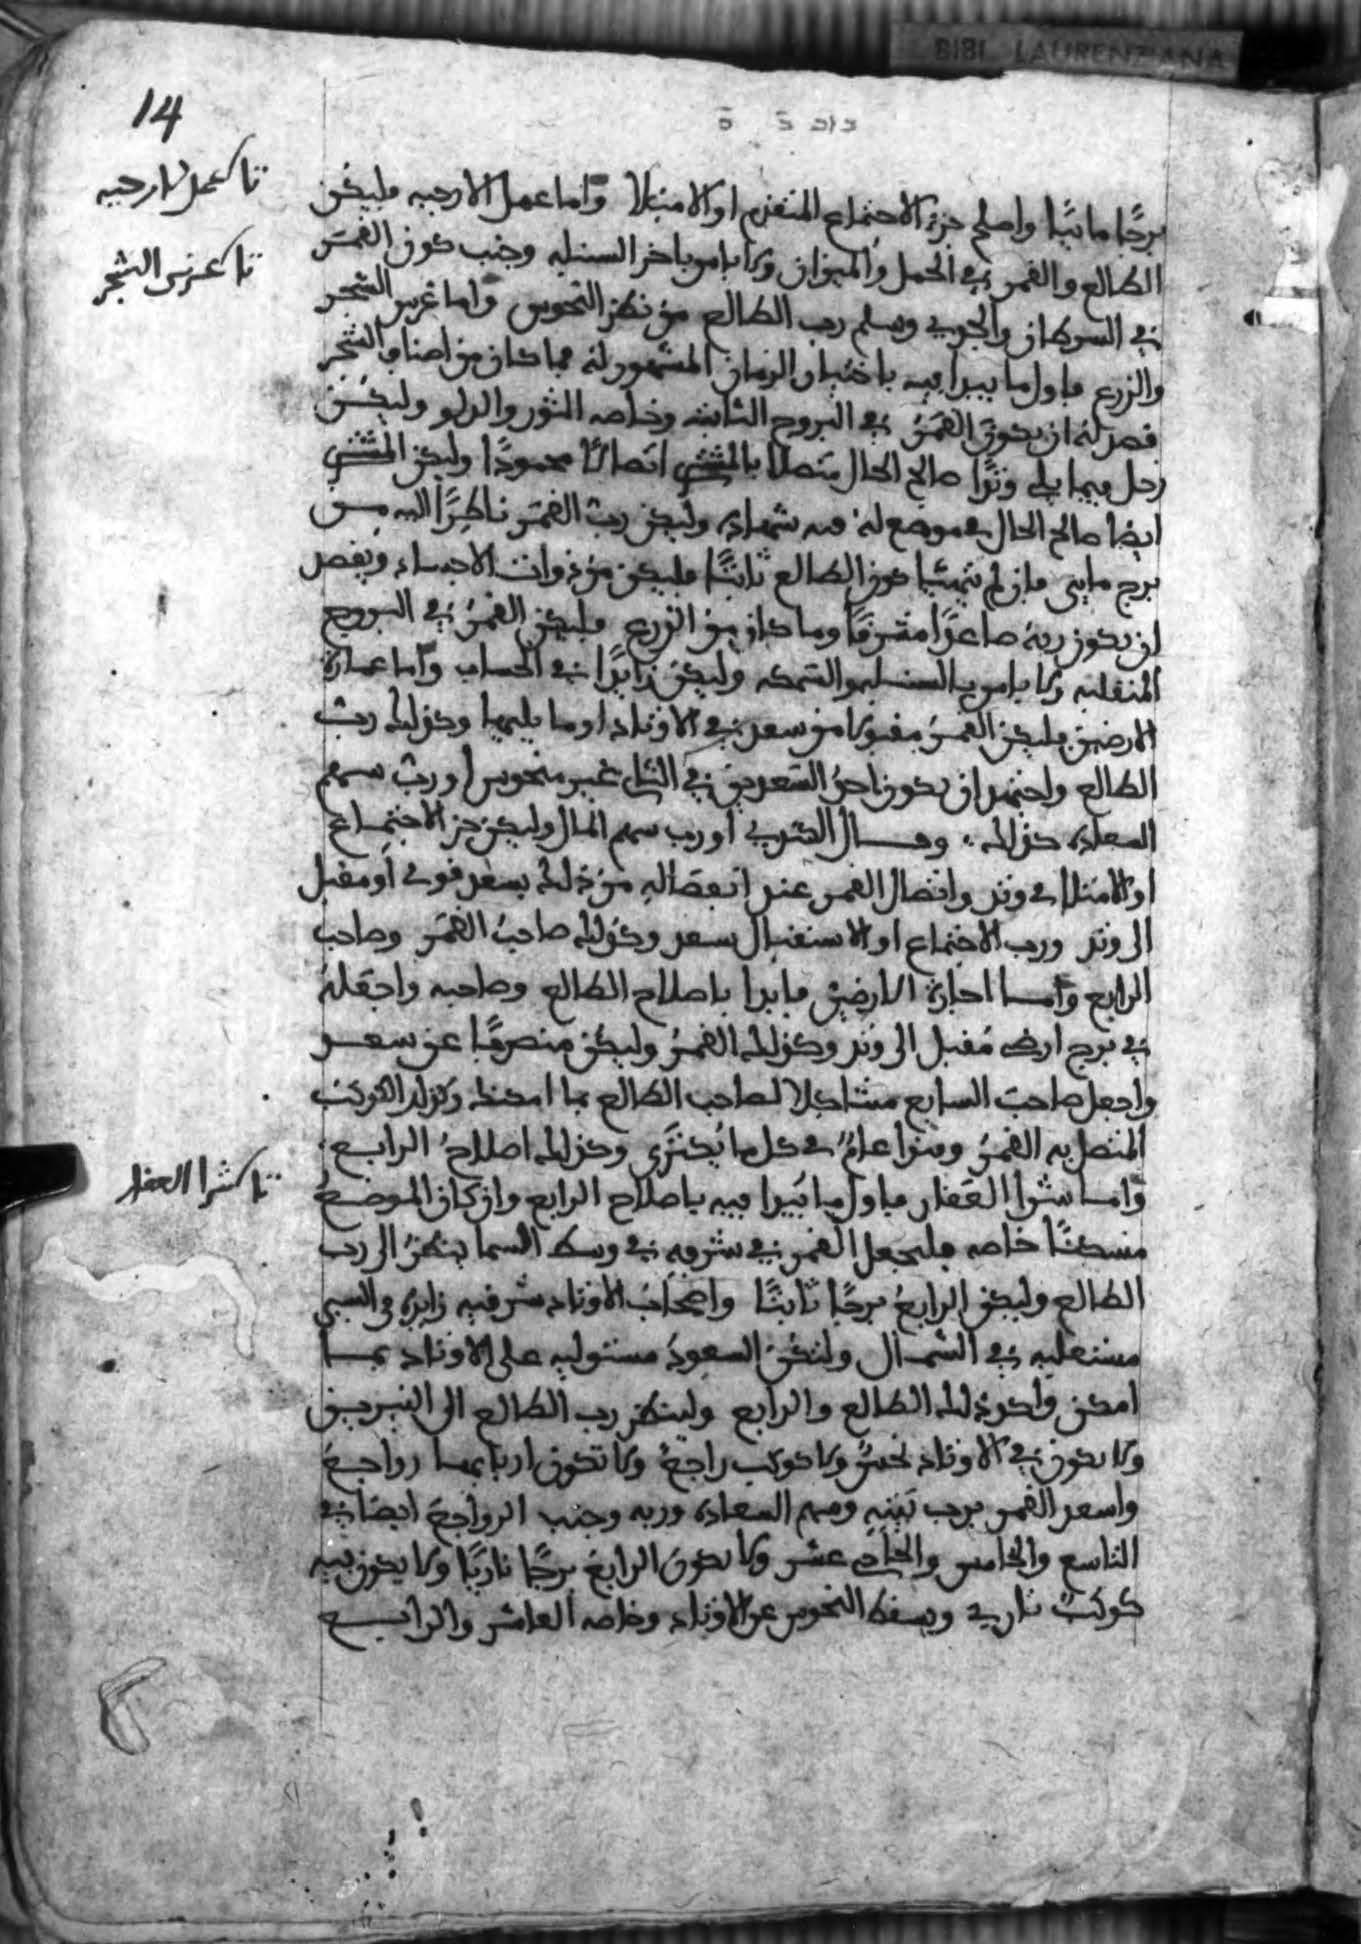 BIBL LAURENZIANA
14
برجًا مائيًا واصلح جزء الاجتماع المتقدم او الامتلا واما عمل الارحيه فليكن
الطالع والقمر في الحمل والميزان ولا باس باخر السنبله وجنب كون القمر
في السرطان والجدي وسلم رب الطالع من نظر النحوس واما غرس الشجر
والزرع فاول ما يبدا فيه باختيار الزمان المشهور له فما كان من اصناف الشجر
فصد له ان يكون القمر في البروج الثابته وخاصه الثور والدلو وليكن
زحل فيما يلي وتدًا صالح الحال متصلا بالمشتري اتصالًا محمودًا وليكن المشتري
ايضا صالح الحال في موضع له فيه شهاده وليكن رب القمر ناظرًا اليه من
برج مايي فان لم يتهيا كون الطالع ثابتًا فليكن من ذوات الاجساد ويقصد
ان يكون ربه صاعدًا مشرقًا وما كان من الزرع فليكن القمر في البروج
المنقلبه ولا باس بالسنبله والسمكه وليكن زايدًا في الحساب واما عمارة
الارضين فليكن القمر مقبولا من سعد في الاوتاد او ما يليها وكذلك رب
الطالع واجتهد ان يكون احد السعدين في الثاني غير منحوس او رب سهم
السعاده كذلك وقال الكندي او رب سهم المال وليكن جز الاجتماع
او الامتلا في وتد واتصال القمر عند انفصاله من ذلك بسعد قوي او مقبل
الى وتد ورب الاجتماع او الاستقبال بسعد وكذلك صاحب القمر وصاحب
الرابع واما اجارة الارضين فابدا باصلاح الطالع وصاحبه واجعله
في برج ارضي مقبل الى وتد وكذلك القمر وليكن منصرفًا عن سعد
واجعل صاحب السابع مشاكلا لصاحب الطالع بما امكنك وكذلك الكوكب
المتصل به القمر وهذا عام في كل ما يكترى وكذلك اصلاح الرابع
واما شرا العقار فاول ما يبدا فيه باصلاح الرابع وان كان الموضع
مسكنًا خاصه فليجعل القمر في شرفه في وسط السما ينظر الى رب
الطالع وليكن الرابع برجًا ثابتًا واصحاب الاوتاد شرقيه زايده في السير
مستعليه في الشمال ولتكن السعود مستوليه على الاوتاد بما
امكن واكد ذلك الطالع والرابع ولينظر رب الطالع الى النيرين
ولا يكون في الاوتاد نحس ولا كوكب راجع ولا تكون اربابها رواجع
واسعد القمر برب بيته وسهم السعاده وربه وجنب الرواجع ايضا في
التاسع والخامس والحادي عشر ولا يكون الرابع برجًا ناريًا ولا يكون فيه
كوكب ناري ويسقط النحوس عن الاوتاد وخاصه العاشر والرابع
عمل الارحيه
غرس الشجر
شرا العقار